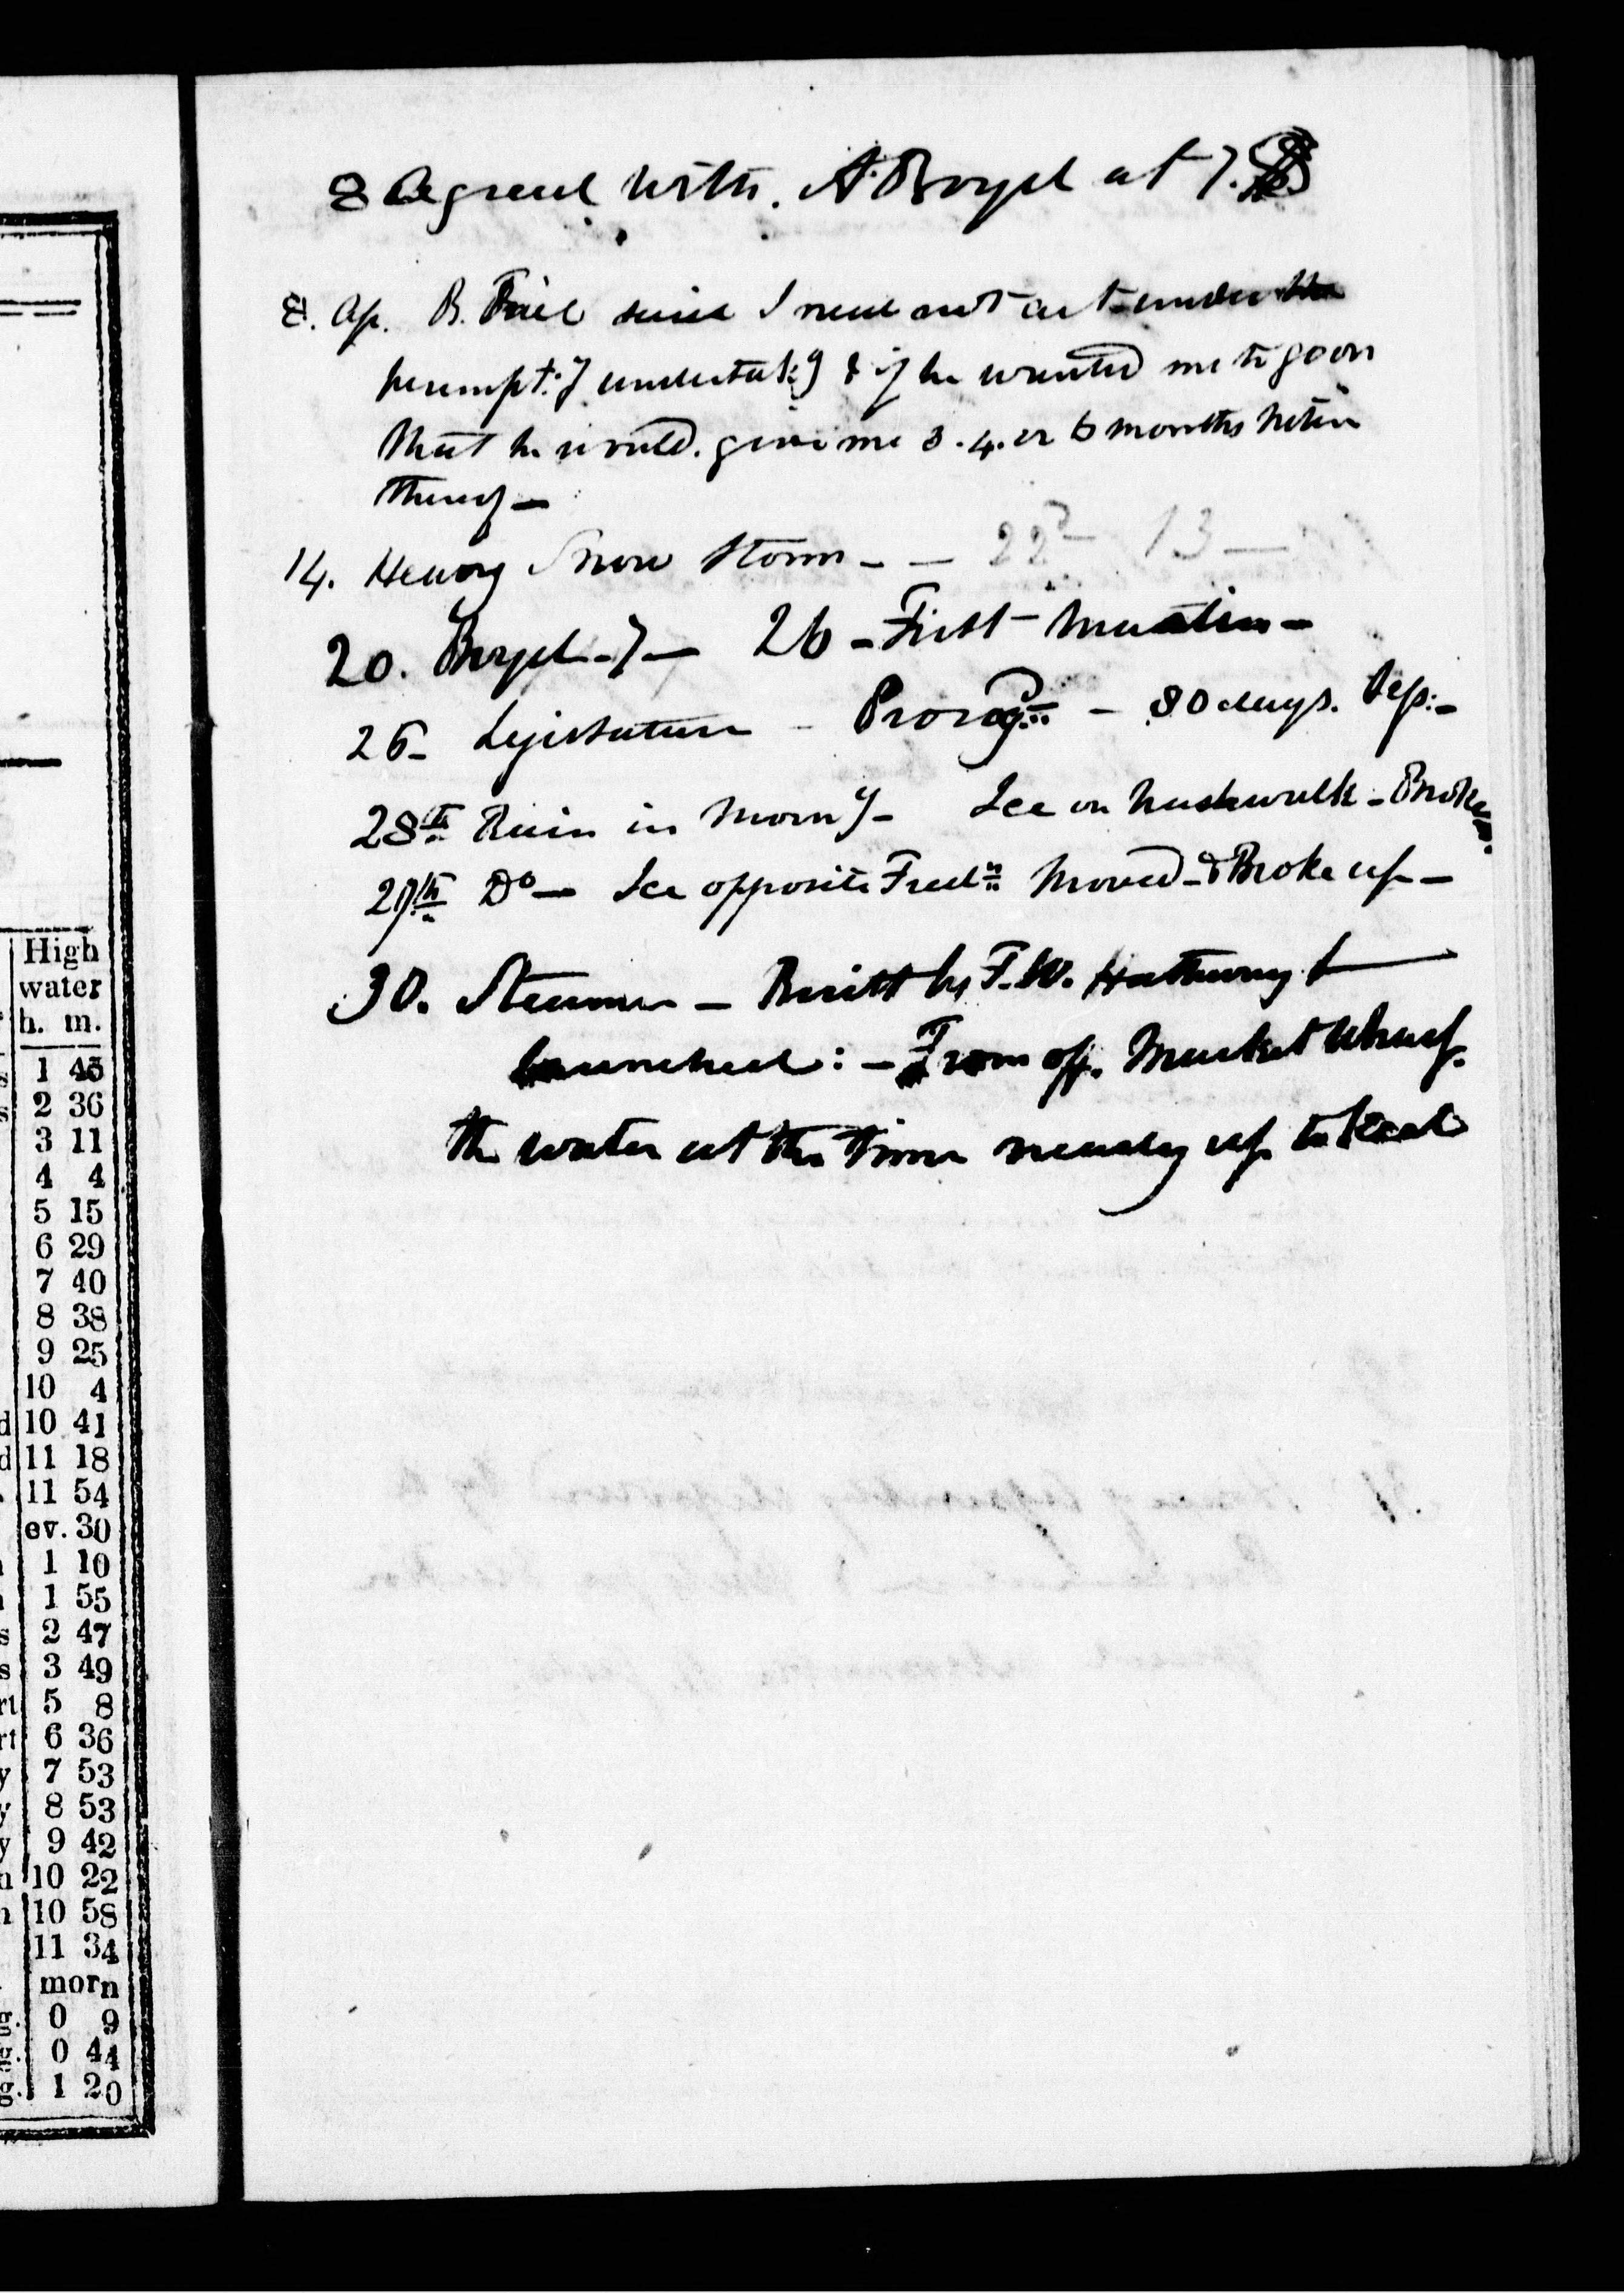 High
water
h. m.
1 45
2 36
3 11
4 4
5 15
6 29
7 40
8 38
9 25
10 4
10 41
11 18
11 54
ev. 30
1 10
1 55
2 47
3 49
5 8
6 36
7 53
8 53
9 42
10 22
10 58
11 34
morn
0 9
0 44
1 20
8 Agreed with. A. Boyd at 7.
8. Ap. B. said I need not act under the
perempt:y undertak:g & if he wanted me to go on
that he would. give me 3. 4. or 6 months notice
thereof —
14. Heavy Snow Storm - — 22 — 13 —
20. Boyd - 7 — 26 - First
26 - Legislature - Prorog:d - 80 days. Sep: -
28th Rain in Morn:g - Ice on Nashwalk - Broken.
29th Do — Ice opposite Fred:n Moved - & Broke up —
30. Steamer — Built by F. W. Hatheway &
launched: - From off. Market Wharf.
the water at the time nearly up to